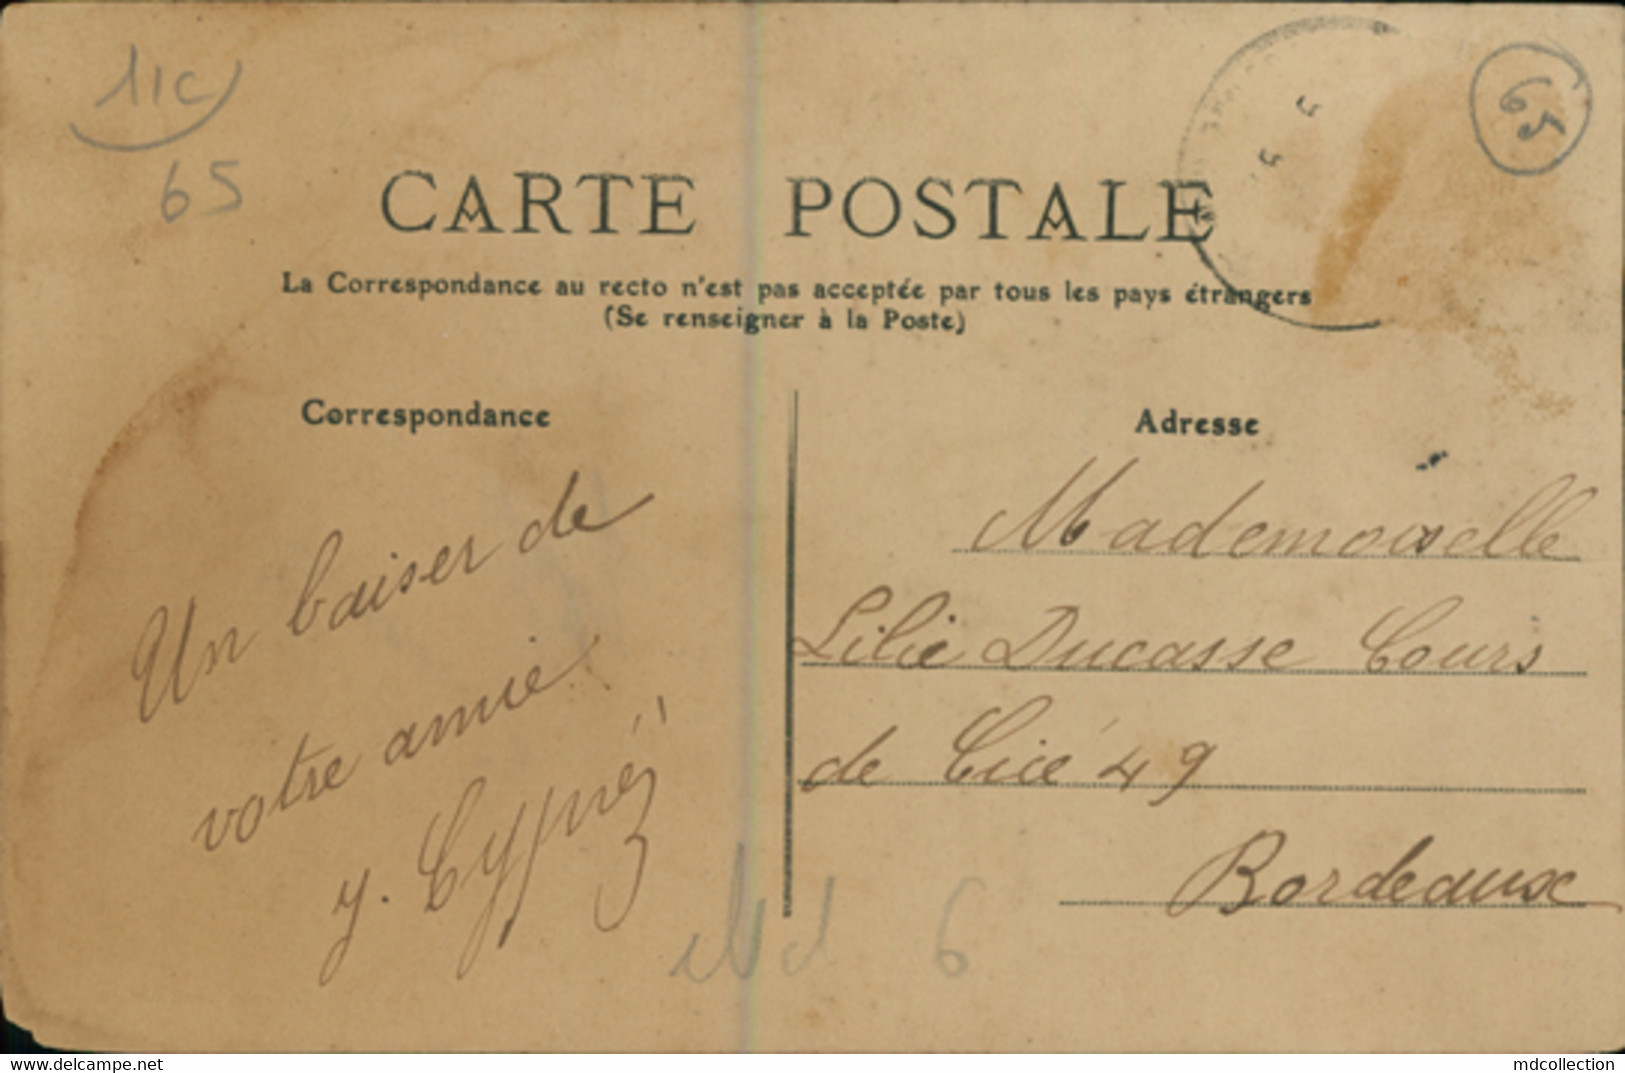 11c
65
65
CARTE POSTALE
La Correspondance au recto n'est pas acceptée par tous les pays étrangers
(Se renseigner à la Poste)
Correspondance
Un baiser de
votre amie
y.
Adresse
Mademoiselle
Lilie Ducasse Cours
de Cicé 49
Bordeaux
6
delcampe.net
mdcollection